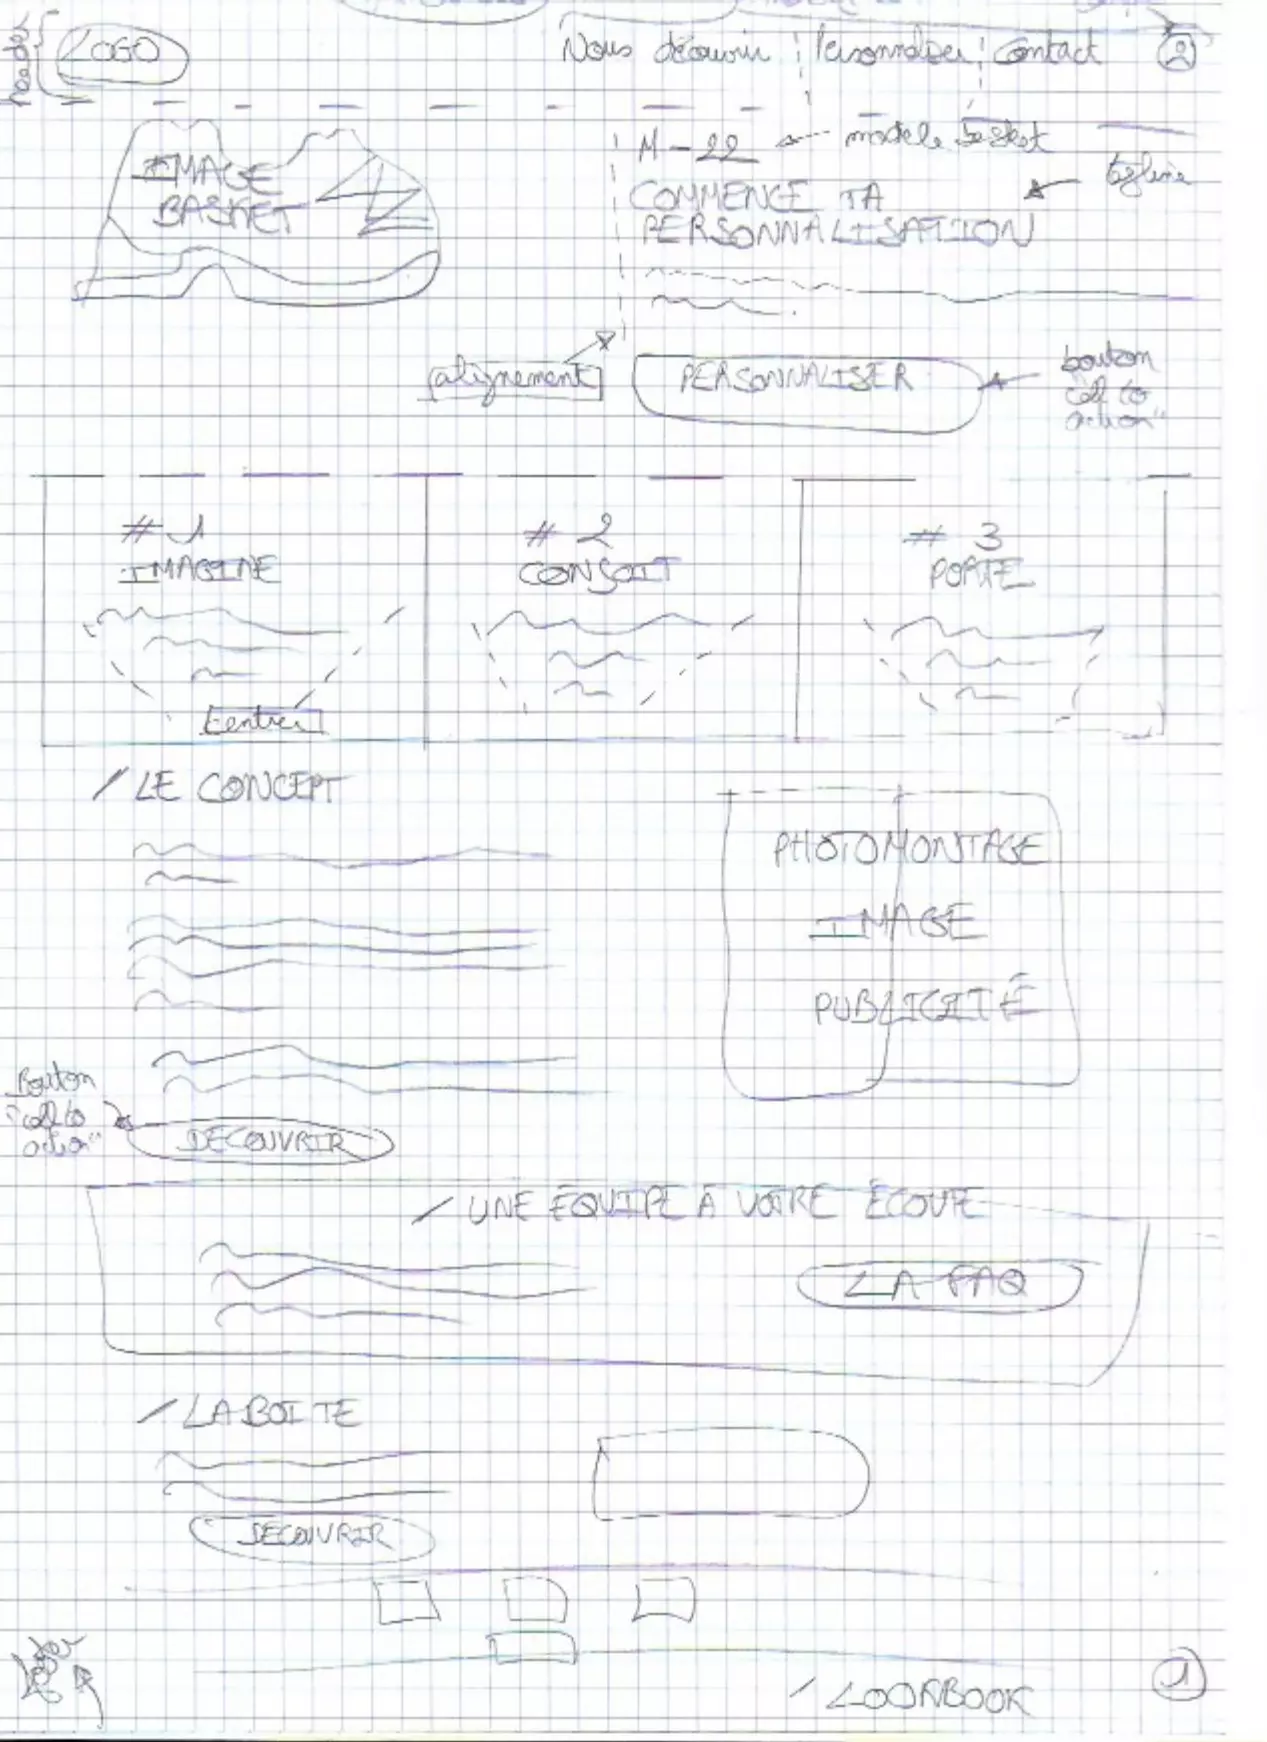 LOGO
Nous découvrir
Personnaliser
Contact
IMAGE
BASKET
M-22
modèle basket
tagline
COMMENCE TA
PERSONNALISATION
alignement
PERSONNALISER
bouton
"call to
action"
#1
IMAGINE
#2
CONSOIT
#3
PORTE
centrer
/ LE CONCEPT
PHOTOMONTAGE
IMAGE
PUBLICITÉ
Bouton
"call to
action"
DECOUVRIR
/ UNE ÉQUIPE À VOTRE ÉCOUTE
LA FAQ
/ LA BOITE
DECOUVRIR
1
/ LOOKBOOK